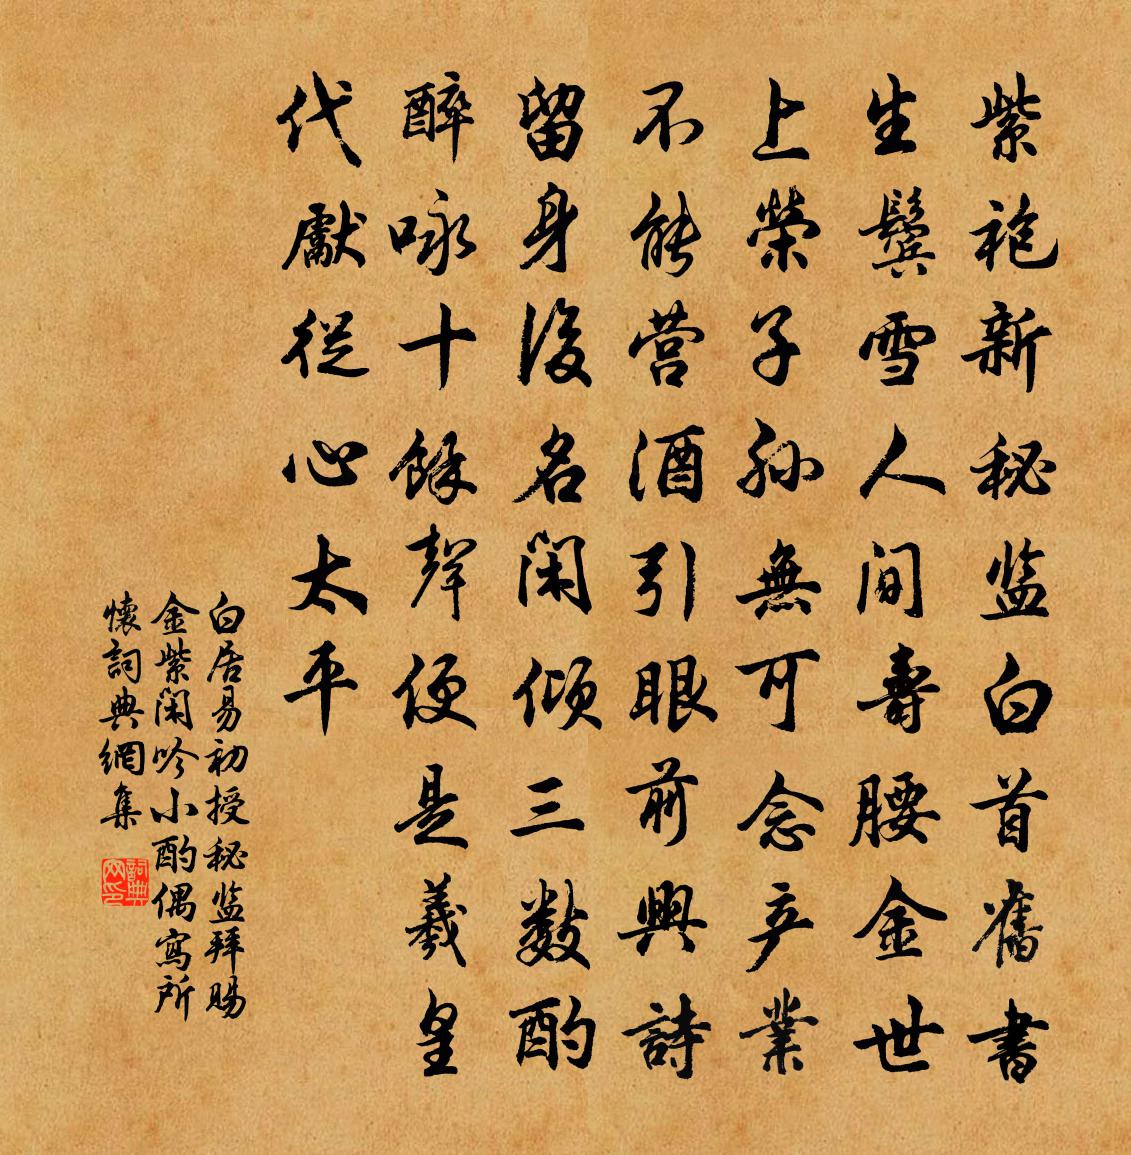 紫袍新秘监白首舊書
生鬓雪人间壽腰金世
上榮子孙無可念产業
不能营酒引眼前興詩
留身後名闲倾三数酌
醉咏十餘聲便是羲皇
代獻從心太平
白居易初授秘监拜賜
金紫闲吟小酌偶寫所
懷詞典網集
詞典
网印